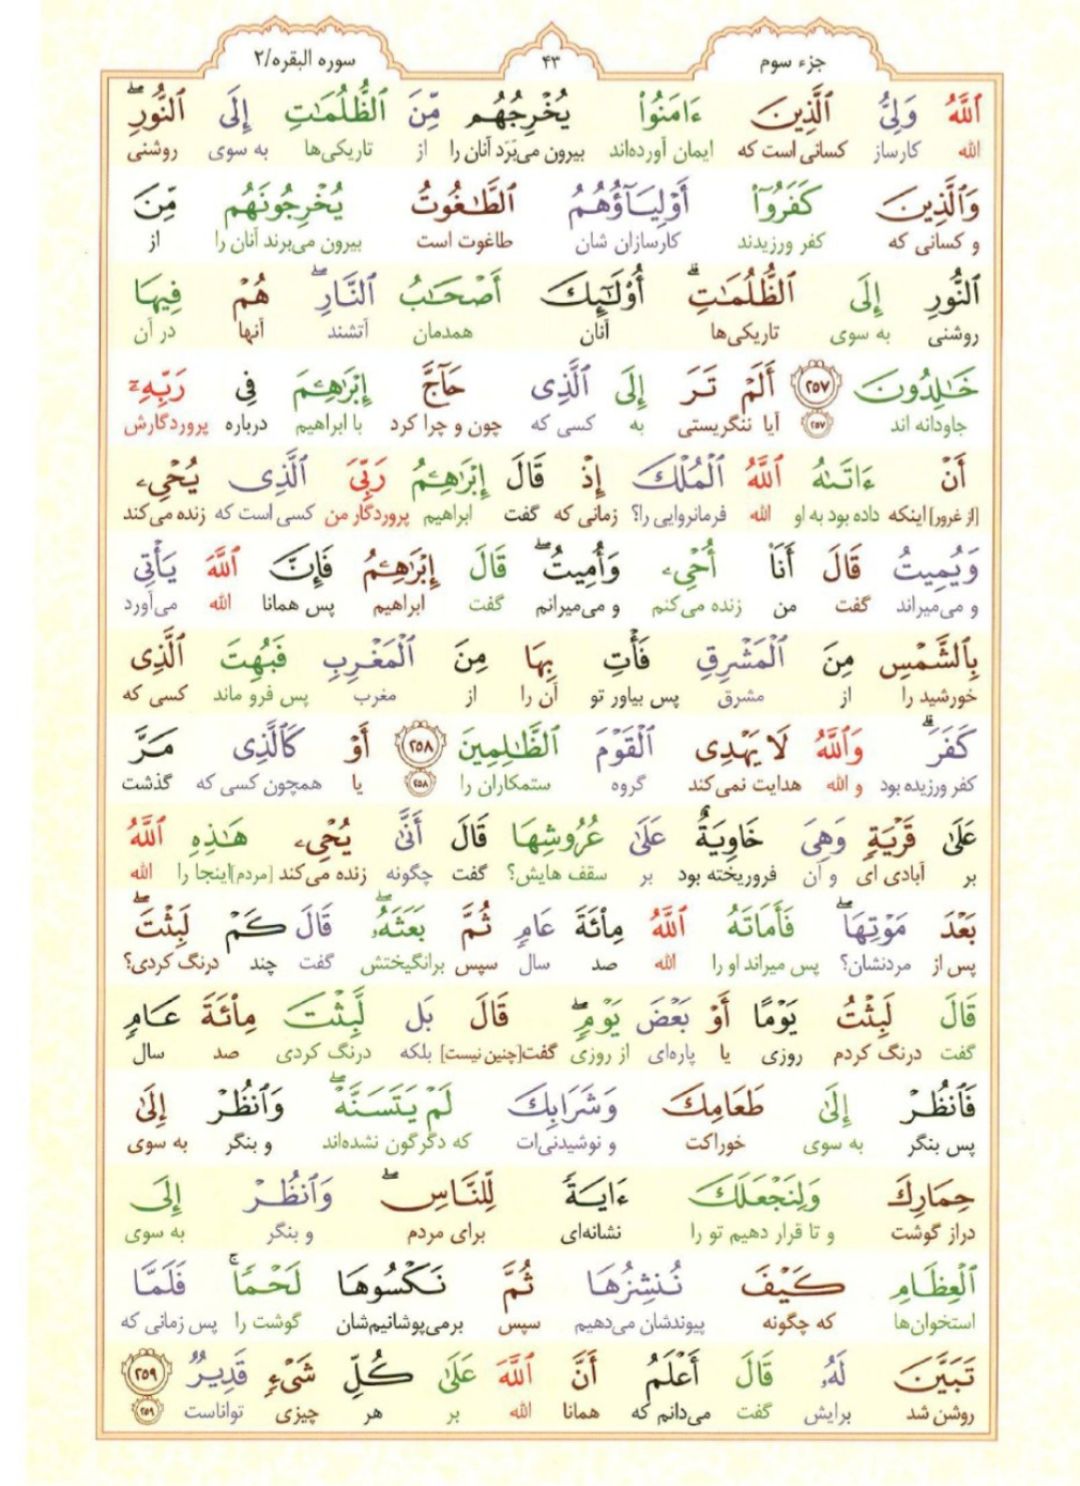 جزء سوم
۴۳
سوره البقره/۲
ٱللَّهُ وَلِيُّ ٱلَّذِينَ ءَامَنُوا۟ يُخْرِجُهُم مِّنَ ٱلظُّلُمَـٰتِ إِلَى ٱلنُّورِ ۖ
الله کارساز کسانی است که ایمان آورده‌اند بیرون می‌بَرَد آنان را از تاریکی‌ها به سوی روشنی
وَٱلَّذِينَ كَفَرُوٓا۟ أَوْلِيَآؤُهُمُ ٱلطَّـٰغُوتُ يُخْرِجُونَهُم مِّنَ
و کسانی که کفر ورزیدند کارسازان شان طاغوت است بیرون می‌برند آنان را از
ٱلنُّورِ إِلَى ٱلظُّلُمَـٰتِ ۗ أُو۟لَـٰٓئِكَ أَصْحَـٰبُ ٱلنَّارِ ۖ هُمْ فِيهَا
روشنی به سوی تاریکی‌ها آنان همدمان آتشند آنها در آن
خَـٰلِدُونَ ٢٥٧ أَلَمْ تَرَ إِلَى ٱلَّذِى حَآجَّ إِبْرَٰهِـۧمَ فِى رَبِّهِۦٓ
جاودانه اند ۲۵۷ آیا ننگریستی به کسی که چون و چرا کرد با ابراهیم درباره پروردگارش
أَنْ ءَاتَىٰهُ ٱللَّهُ ٱلْمُلْكَ إِذْ قَالَ إِبْرَٰهِـۧمُ رَبِّىَ ٱلَّذِى يُحْىِۦ
[از غرور] اینکه داده بود به او الله فرمانروایی را؟ زمانی که گفت ابراهیم پروردگار من کسی است که زنده می‌کند
وَيُمِيتُ قَالَ أَنَا۠ أُحْىِۦ وَأُمِيتُ ۖ قَالَ إِبْرَٰهِـۧمُ فَإِنَّ ٱللَّهَ يَأْتِى
و می‌میراند گفت من زنده می‌کنم و می‌میرانم گفت ابراهیم پس همانا الله می‌آورد
بِٱلشَّمْسِ مِنَ ٱلْمَشْرِقِ فَأْتِ بِهَا مِنَ ٱلْمَغْرِبِ فَبُهِتَ ٱلَّذِى
خورشید را از مشرق پس بیاور تو آن را از مغرب پس فرو ماند کسی که
كَفَرَ ۗ وَٱللَّهُ لَا يَهْدِى ٱلْقَوْمَ ٱلظَّـٰلِمِينَ ٢٥٨ أَوْ كَٱلَّذِى مَرَّ
کفر ورزیده بود و الله هدایت نمی‌کند گروه ستمکاران را ۲۵۸ یا همچون کسی که گذشت
عَلَىٰ قَرْيَةٍ وَهِىَ خَاوِيَةٌ عَلَىٰ عُرُوشِهَا قَالَ أَنَّىٰ يُحْىِۦ هَـٰذِهِ ٱللَّهُ
بر آبادی ای و آن فروریخته بود بر سقف هایش؟ گفت چگونه زنده می‌کند [مردم]اینجا را الله
بَعْدَ مَوْتِهَا ۖ فَأَمَاتَهُ ٱللَّهُ مِا۟ئَةَ عَامٍ ثُمَّ بَعَثَهُۥ ۖ قَالَ كَمْ لَبِثْتَ ۖ
پس از مردنشان؟ پس میراند او را الله صد سال سپس برانگیختش گفت چند درنگ کردی؟
قَالَ لَبِثْتُ يَوْمًا أَوْ بَعْضَ يَوْمٍ ۖ قَالَ بَل لَّبِثْتَ مِا۟ئَةَ عَامٍ
گفت درنگ کردم روزی یا پاره‌ای از روزی گفت[چنین نیست] بلکه درنگ کردی صد سال
فَٱنظُرْ إِلَىٰ طَعَامِكَ وَشَرَابِكَ لَمْ يَتَسَنَّهْ ۖ وَٱنظُرْ إِلَىٰ
پس بنگر به سوی خوراکت و نوشیدنی‌ات که دگرگون نشده‌اند و بنگر به سوی
حِمَارِكَ وَلِنَجْعَلَكَ ءَايَةً لِّلنَّاسِ ۖ وَٱنظُرْ إِلَى
دراز گوشت و تا قرار دهیم تو را نشانه‌ای برای مردم و بنگر به سوی
ٱلْعِظَامِ كَيْفَ نُنشِزُهَا ثُمَّ نَكْسُوهَا لَحْمًا ۚ فَلَمَّا
استخوان‌ها که چگونه پیوندشان می‌دهیم سپس برمی‌پوشانیم‌شان گوشت را پس زمانی که
تَبَيَّنَ لَهُۥ قَالَ أَعْلَمُ أَنَّ ٱللَّهَ عَلَىٰ كُلِّ شَىْءٍ قَدِيرٌ ٢٥٩
روشن شد برایش گفت می‌دانم که همانا الله بر هر چیزی تواناست ۲۵۹